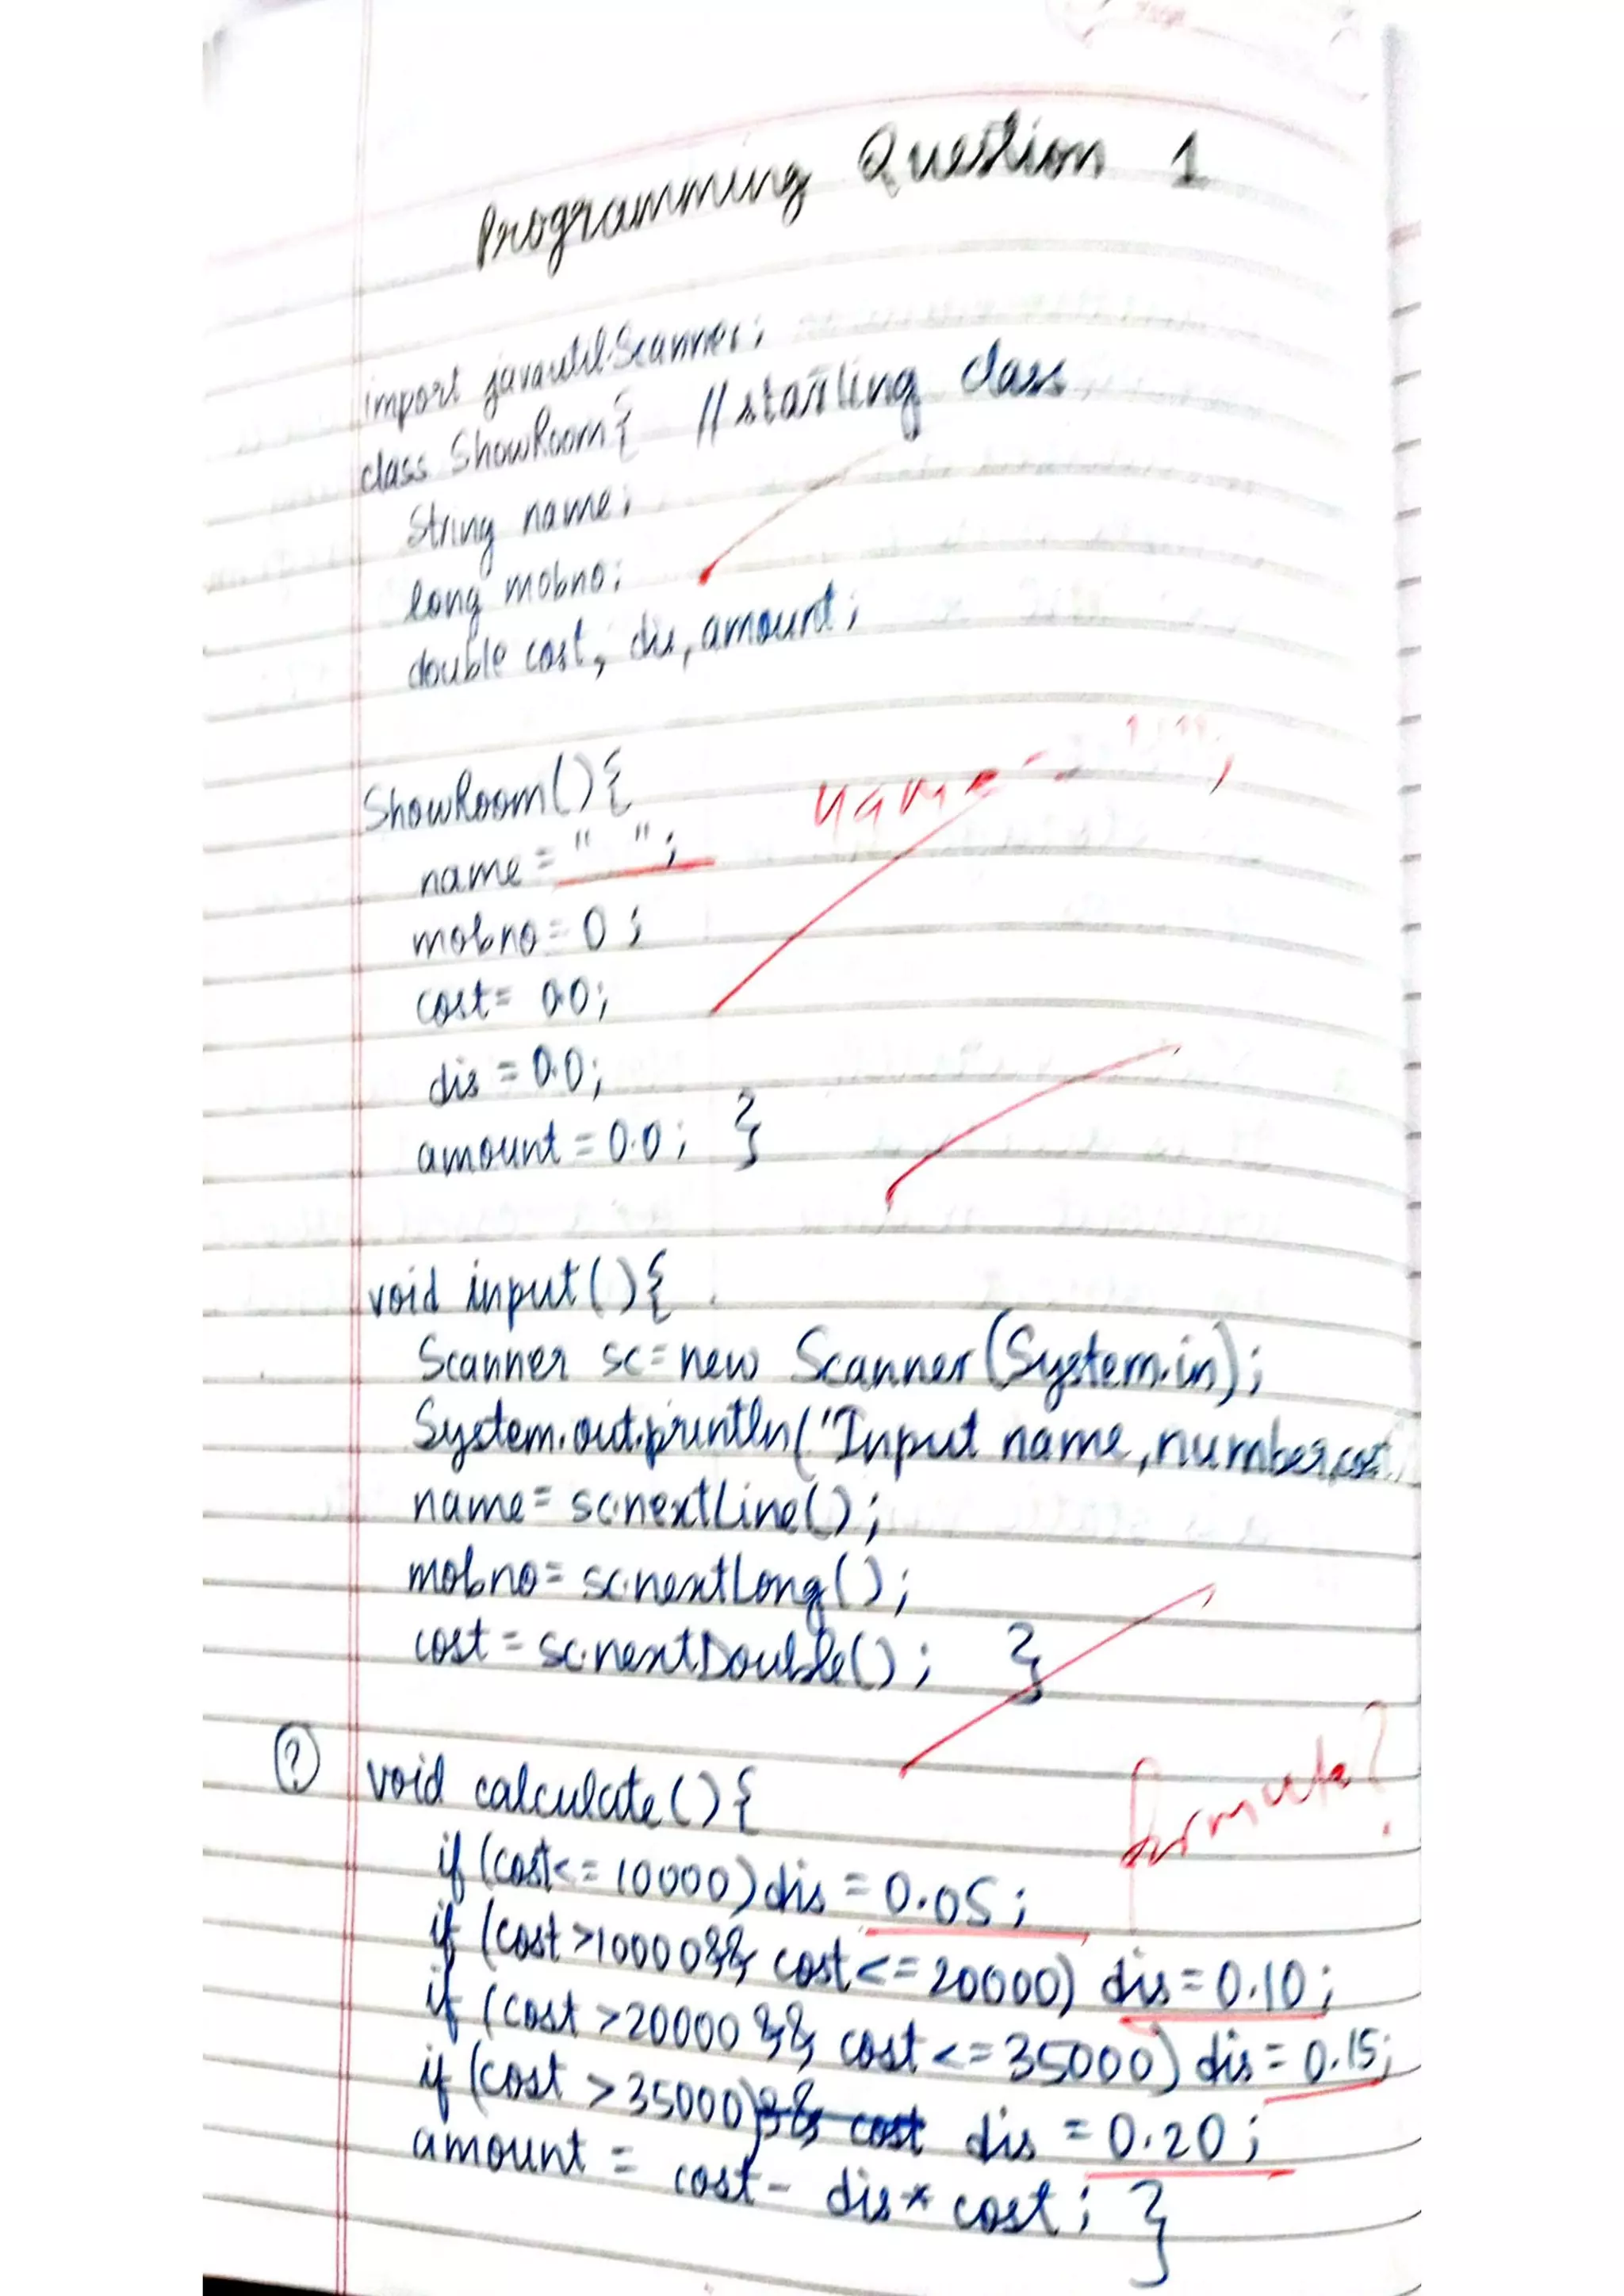 Programming Question 1
import java.util.Scanner;
class ShowRoom{ //starting class
String name;
long mobno;
double cost, dis, amount;
ShowRoom(){
name = " ";
name = "";
mobno = 0;
cost = 0.0;
dis = 0.0;
amount = 0.0; }
void input(){
Scanner sc = new Scanner(System.in);
System.out.println("Input name, number, cost
name = sc.nextLine();
mobno = sc.nextLong();
cost = sc.nextDouble(); }
? void calculate(){
formula?
if (cost<=10000) dis = 0.05;
if (cost>10000&& cost<=20000) dis = 0.10;
if (cost >20000 && cost<=35000) dis = 0.15;
if (cost >35000) dis = 0.20;
amount = cost - dis * cost; }